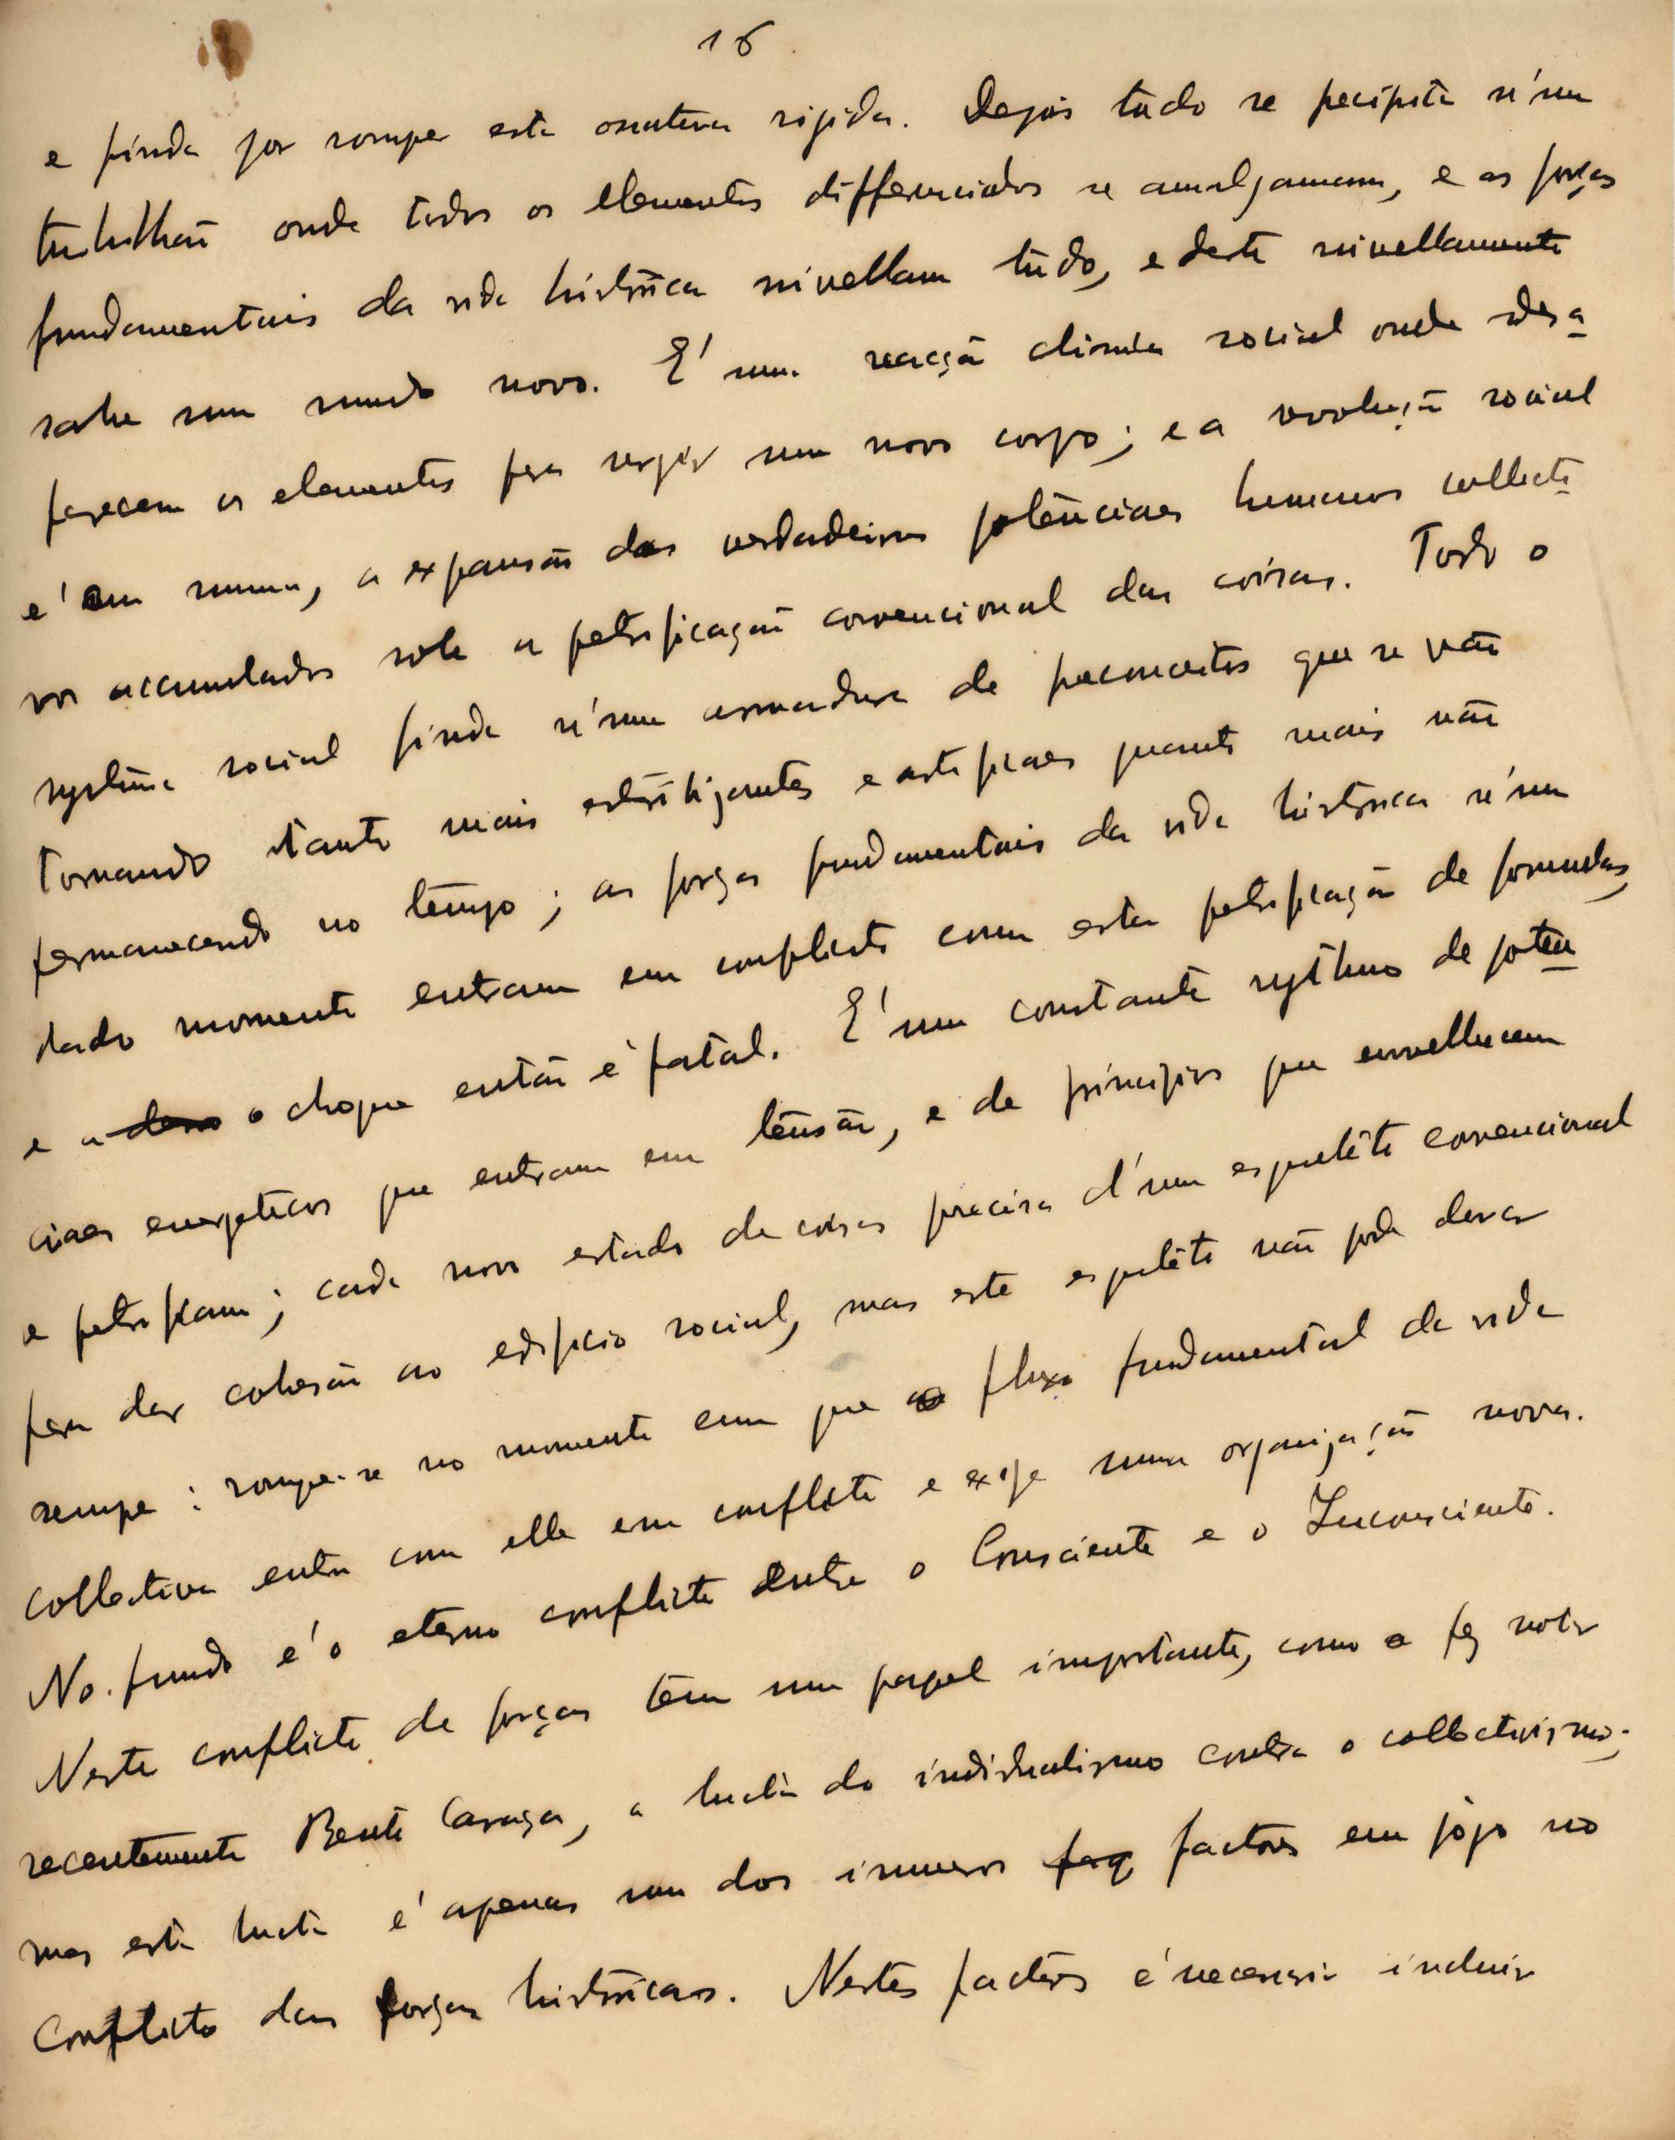 16
e finda por romper esta ossatura rigida. Depois tudo se precipita n'um
turbilhão onde todos os elementos differenciados se amalgamam, e as forças
fundamentais da vida histórica nivellam tudo, e deste nivellamento
sahe um mundo novo. E' uma reacção chimica social onde desa-
parecem os elementos para surgir um novo corpo; e a revolução social
é em summa, a expansão das verdadeiras potênciaes humanas collecti-
vas accumuladas sob a petrificação convencional das coisas. Todo o
systêma social finda n'uma armadura de preconceitos que se vão
tornando tanto mais esterilizantes e artificiaes quanto mais vão
permanecendo no têmpo; as forças fundamentais da vida histórica n'um
dado momento entram em conflicto com esta petrificação de formulas,
e a o choque então é fatal. E' um constante rythmo de poten-
ciaes energeticos que entram em tensão, e de principios que envelhecem
e petrificam; cada novo estado de coisas precisa d'um esquelêto convencional
para dar cohesão ao edificio social, mas este esquelêto não pode durar
sempre: rompe-se no momento em que o fluxo fundamental da vida
collectiva entra com elle em conflicto e exige uma organização nova.
No fundo é o eterno conflicto entre o Consciente e o Inconsciente.
Neste conflicto de forças tem um papel importante, como o fez notar
recentemente Bento Caraça, a lucta do individualismo contra o collectivismo;
mas esta lucta é apenas um dos inumeros factores em jôgo no
conflicto das forças históricas. Nestes factores é necessario incluir